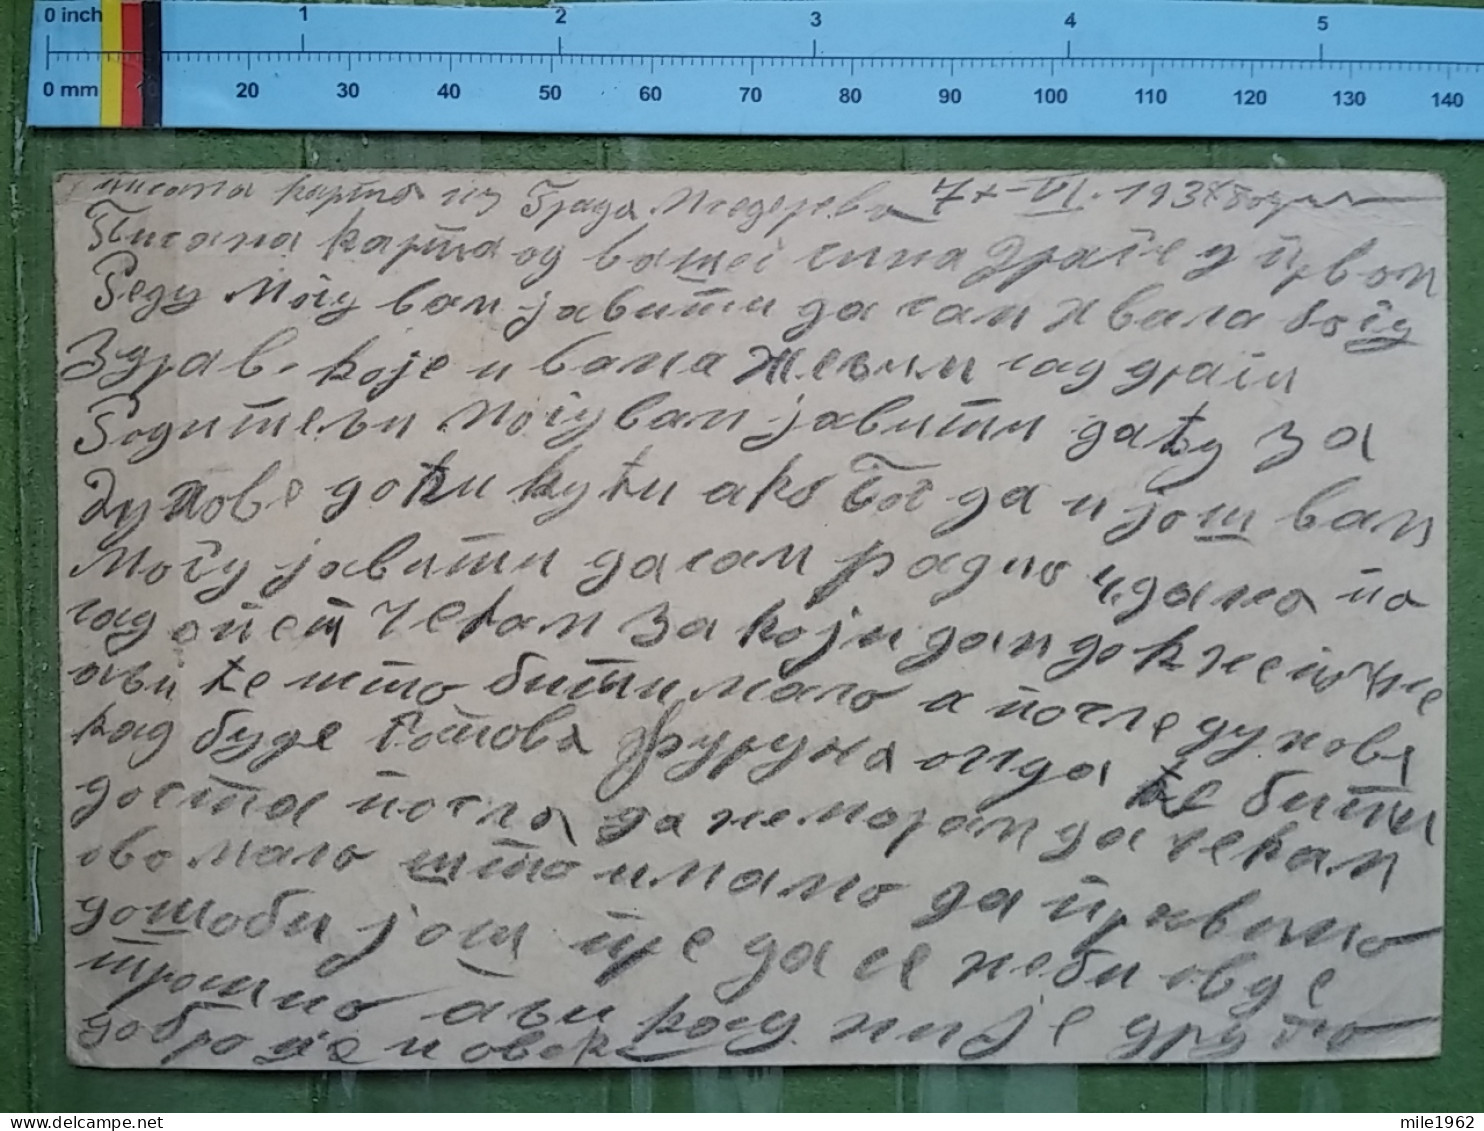 0 inch 1 2 3 4 5
0 mm 10 20 30 40 50 60 70 80 90 100 110 120 130 140
писата карта из Града Смедерева 7 VI. 193
Писана карта од вашег сина Драге у првом
Реду Могу вам јавити да сам хвала богу
Здрав. које и вама желим сад драги
Родитељи могу вам јавити да ћу за
Духове доћи кући ако Бог да и још вам
Могу јавити да сам радио дана па
сад опет чекам за који дан док не
али ће што бити мало а после духова
кад буде готова фуруна онда ће бити
доста посла да не морам да чекам
ово мало што имамо да правимо
дошоби још пре да се неби овде
трошио али код није друго
добро је и овок
mile1962